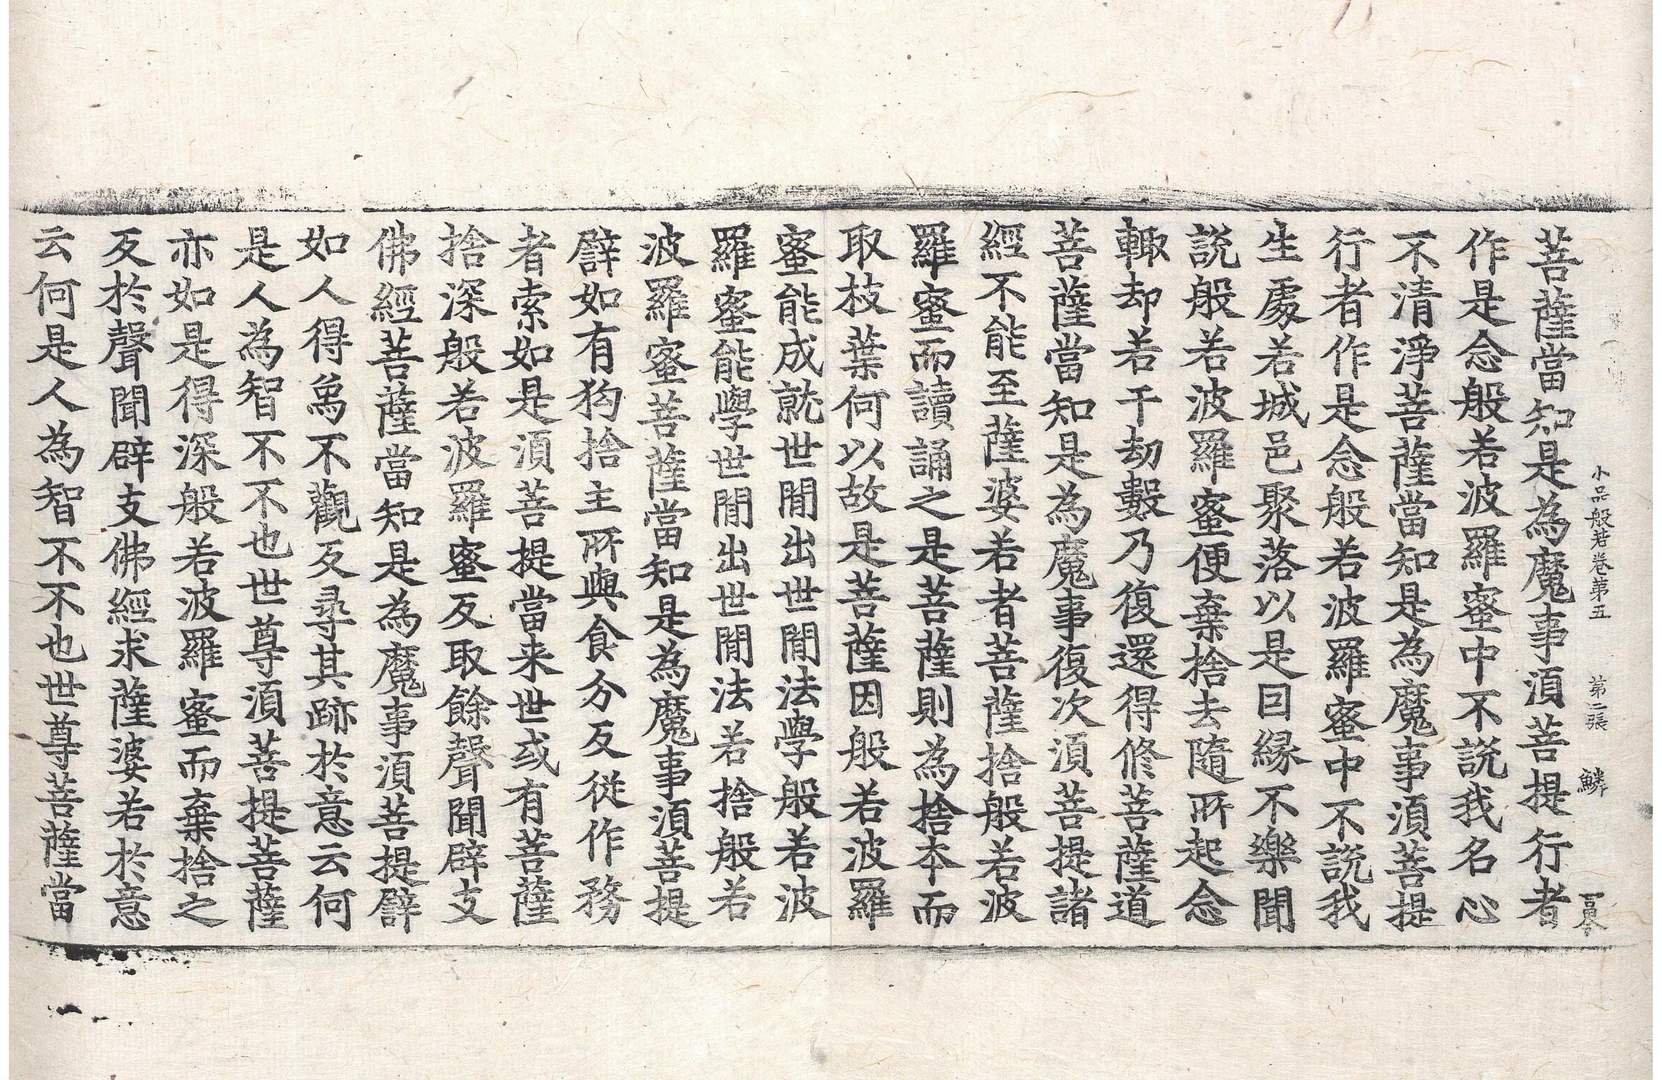 小品般若卷第五 第二張 鱗
菩薩當知是為魔事須菩提行者
作是念般若波羅蜜中不說我名心
不清淨菩薩當知是為魔事須菩提
行者作是念般若波羅蜜中不說我
生處若城邑聚落以是因緣不樂聞
說般若波羅蜜便棄捨去隨所起念
輙却若干劫數乃復還得修菩薩道
菩薩當知是為魔事復次須菩提諸
經不能至薩婆若者菩薩捨般若波
羅蜜而讀誦之是菩薩則為捨本而
取枝葉何以故是菩薩因般若波羅
蜜能成就世閒出世閒法學般若波
羅蜜能學世閒出世閒法若捨般若
波羅蜜菩薩當知是為魔事須菩提
譬如有狗捨主所與食分反從作務
者索如是須菩提當来世或有菩薩
捨深般若波羅蜜反取餘聲聞辟支
佛經菩薩當知是為魔事須菩提譬
如人得象不觀反尋其跡於意云何
是人為智不不也世尊須菩提菩薩
亦如是得深般若波羅蜜而棄捨之
反於聲聞辟支佛經求薩婆若於意
云何是人為智不不也世尊菩薩當